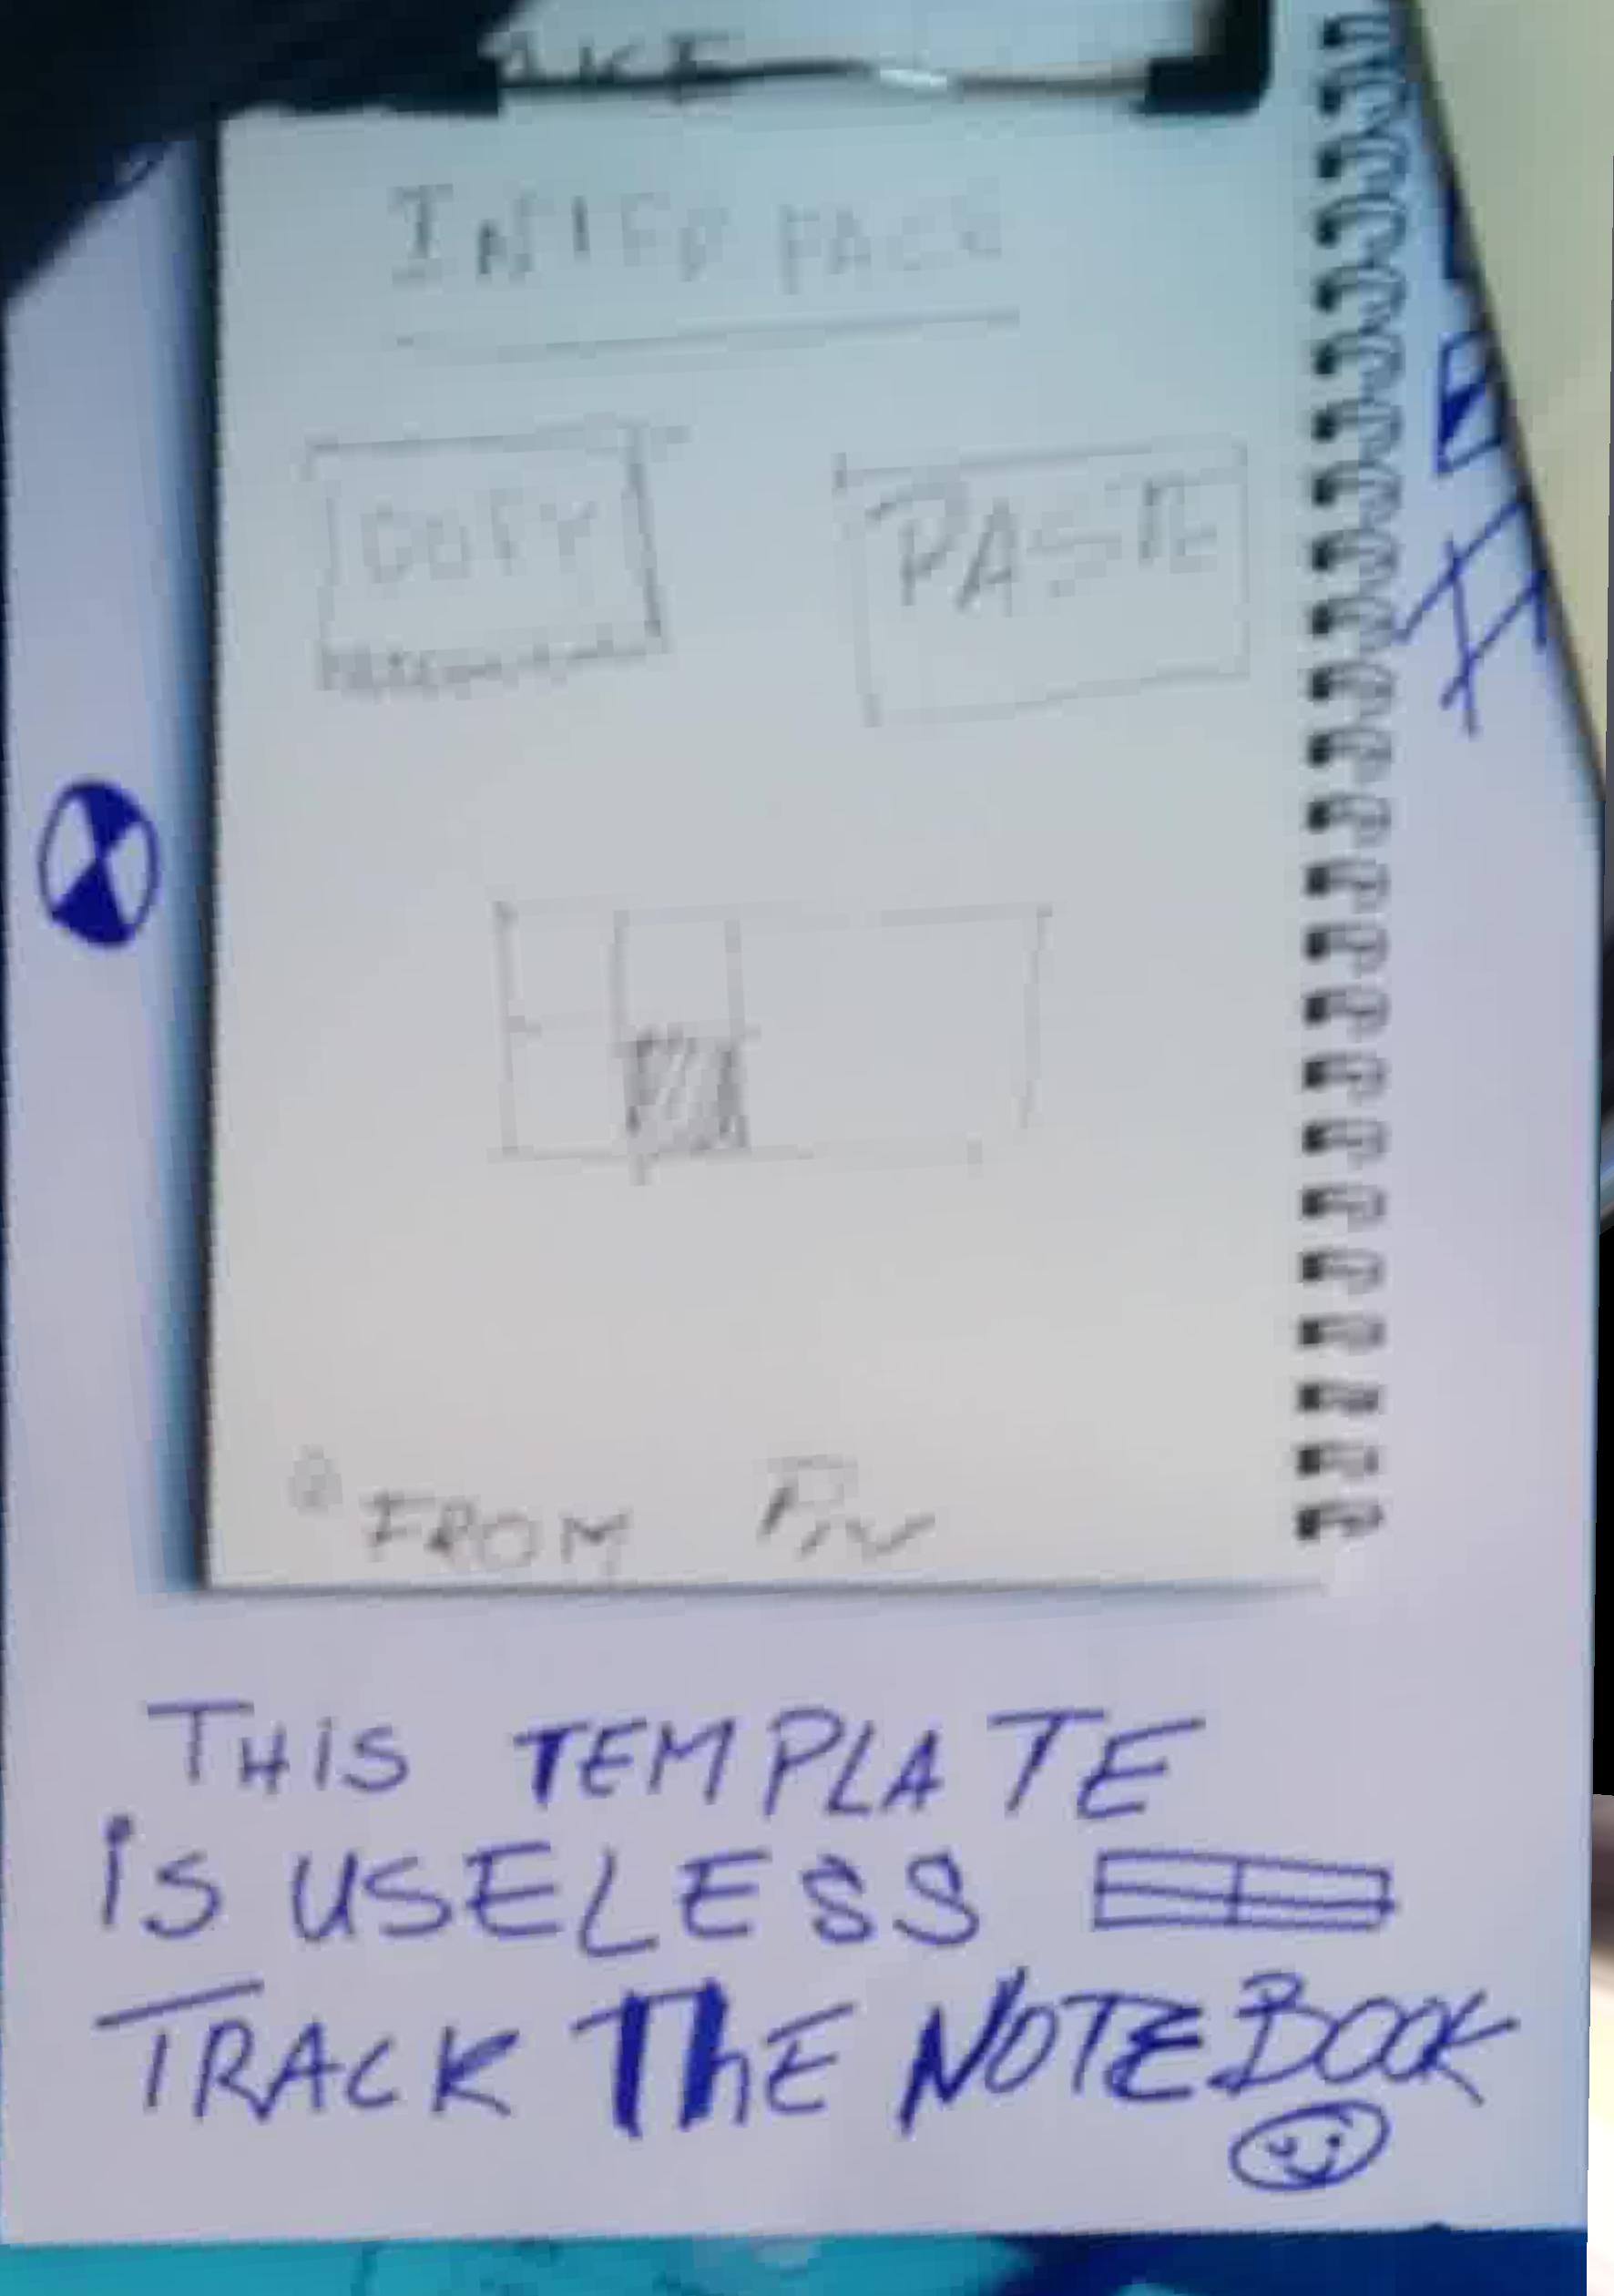 INTERFACE
COPY PASTE
FROM
THIS TEMPLATE
iS USELESS
TRACK ThE NOTEBOOK